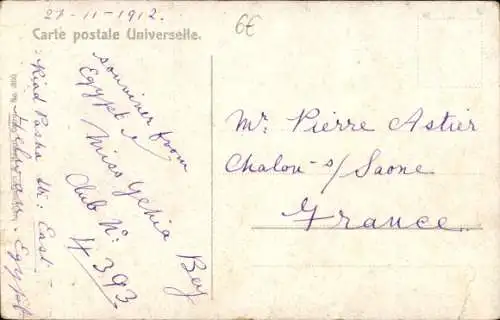 27-11-1912.
6€
Carte postale Universelle.
souviner from
Egypt
Miss Yehia Bey
Club No:
H 393
Riad Pasha Str: East-
Helouan. Egypt
Mr. Pierre Astier
Chalon s/ Saone
France